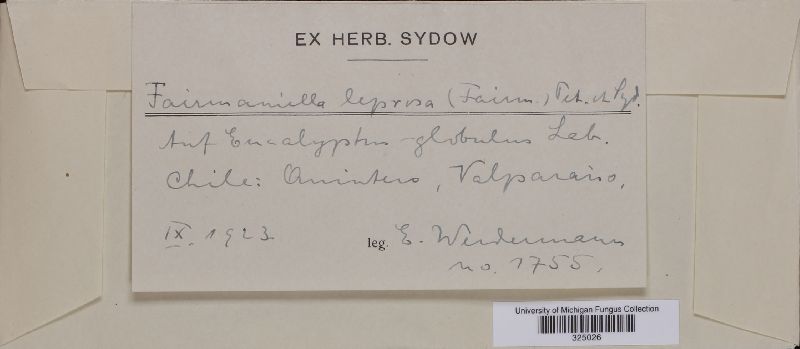 EX HERB. SYDOW
Fairmaniella leprosa (Fairm.) Pet. et Syd.
Auf Eucalyptus globulus Lab.
Chile: Quintero, Valparaiso,
IX. 1923
leg. E. Werdermann
no. 1755.
University of Michigan Fungus Collection
325026